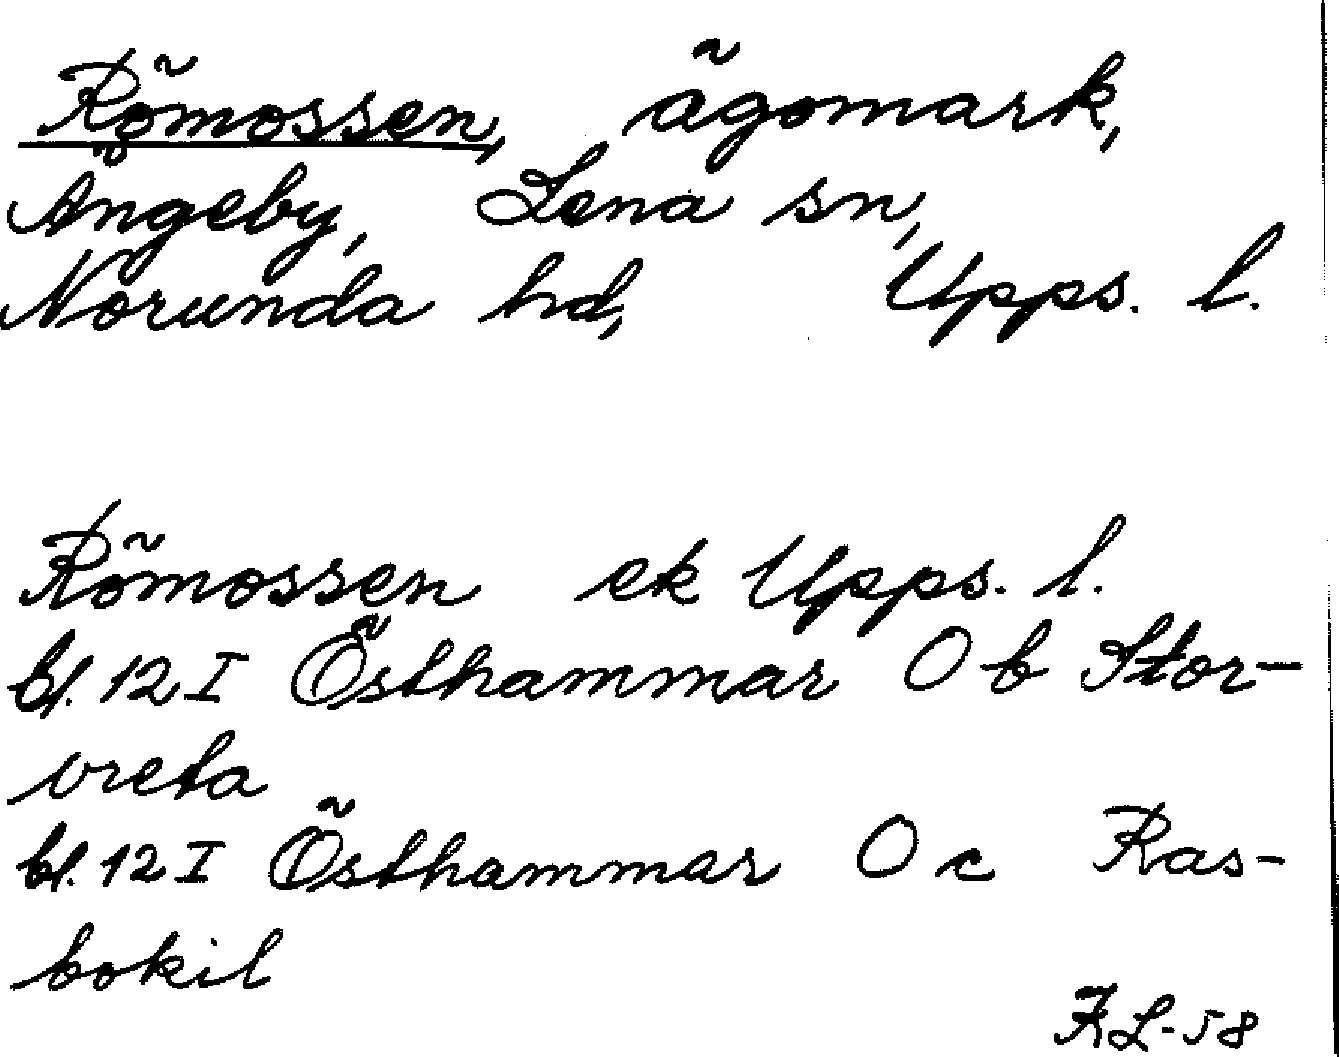 Römossen, ägomark,
Ängeby, Lena sn,
Norunda hd, Upps. l.
Römossen ek Upps. l.
bl. 12 I Östhammar O b Stor-
vreta
bl. 12 I Östhammar O c Ras-
bokil
KL-58